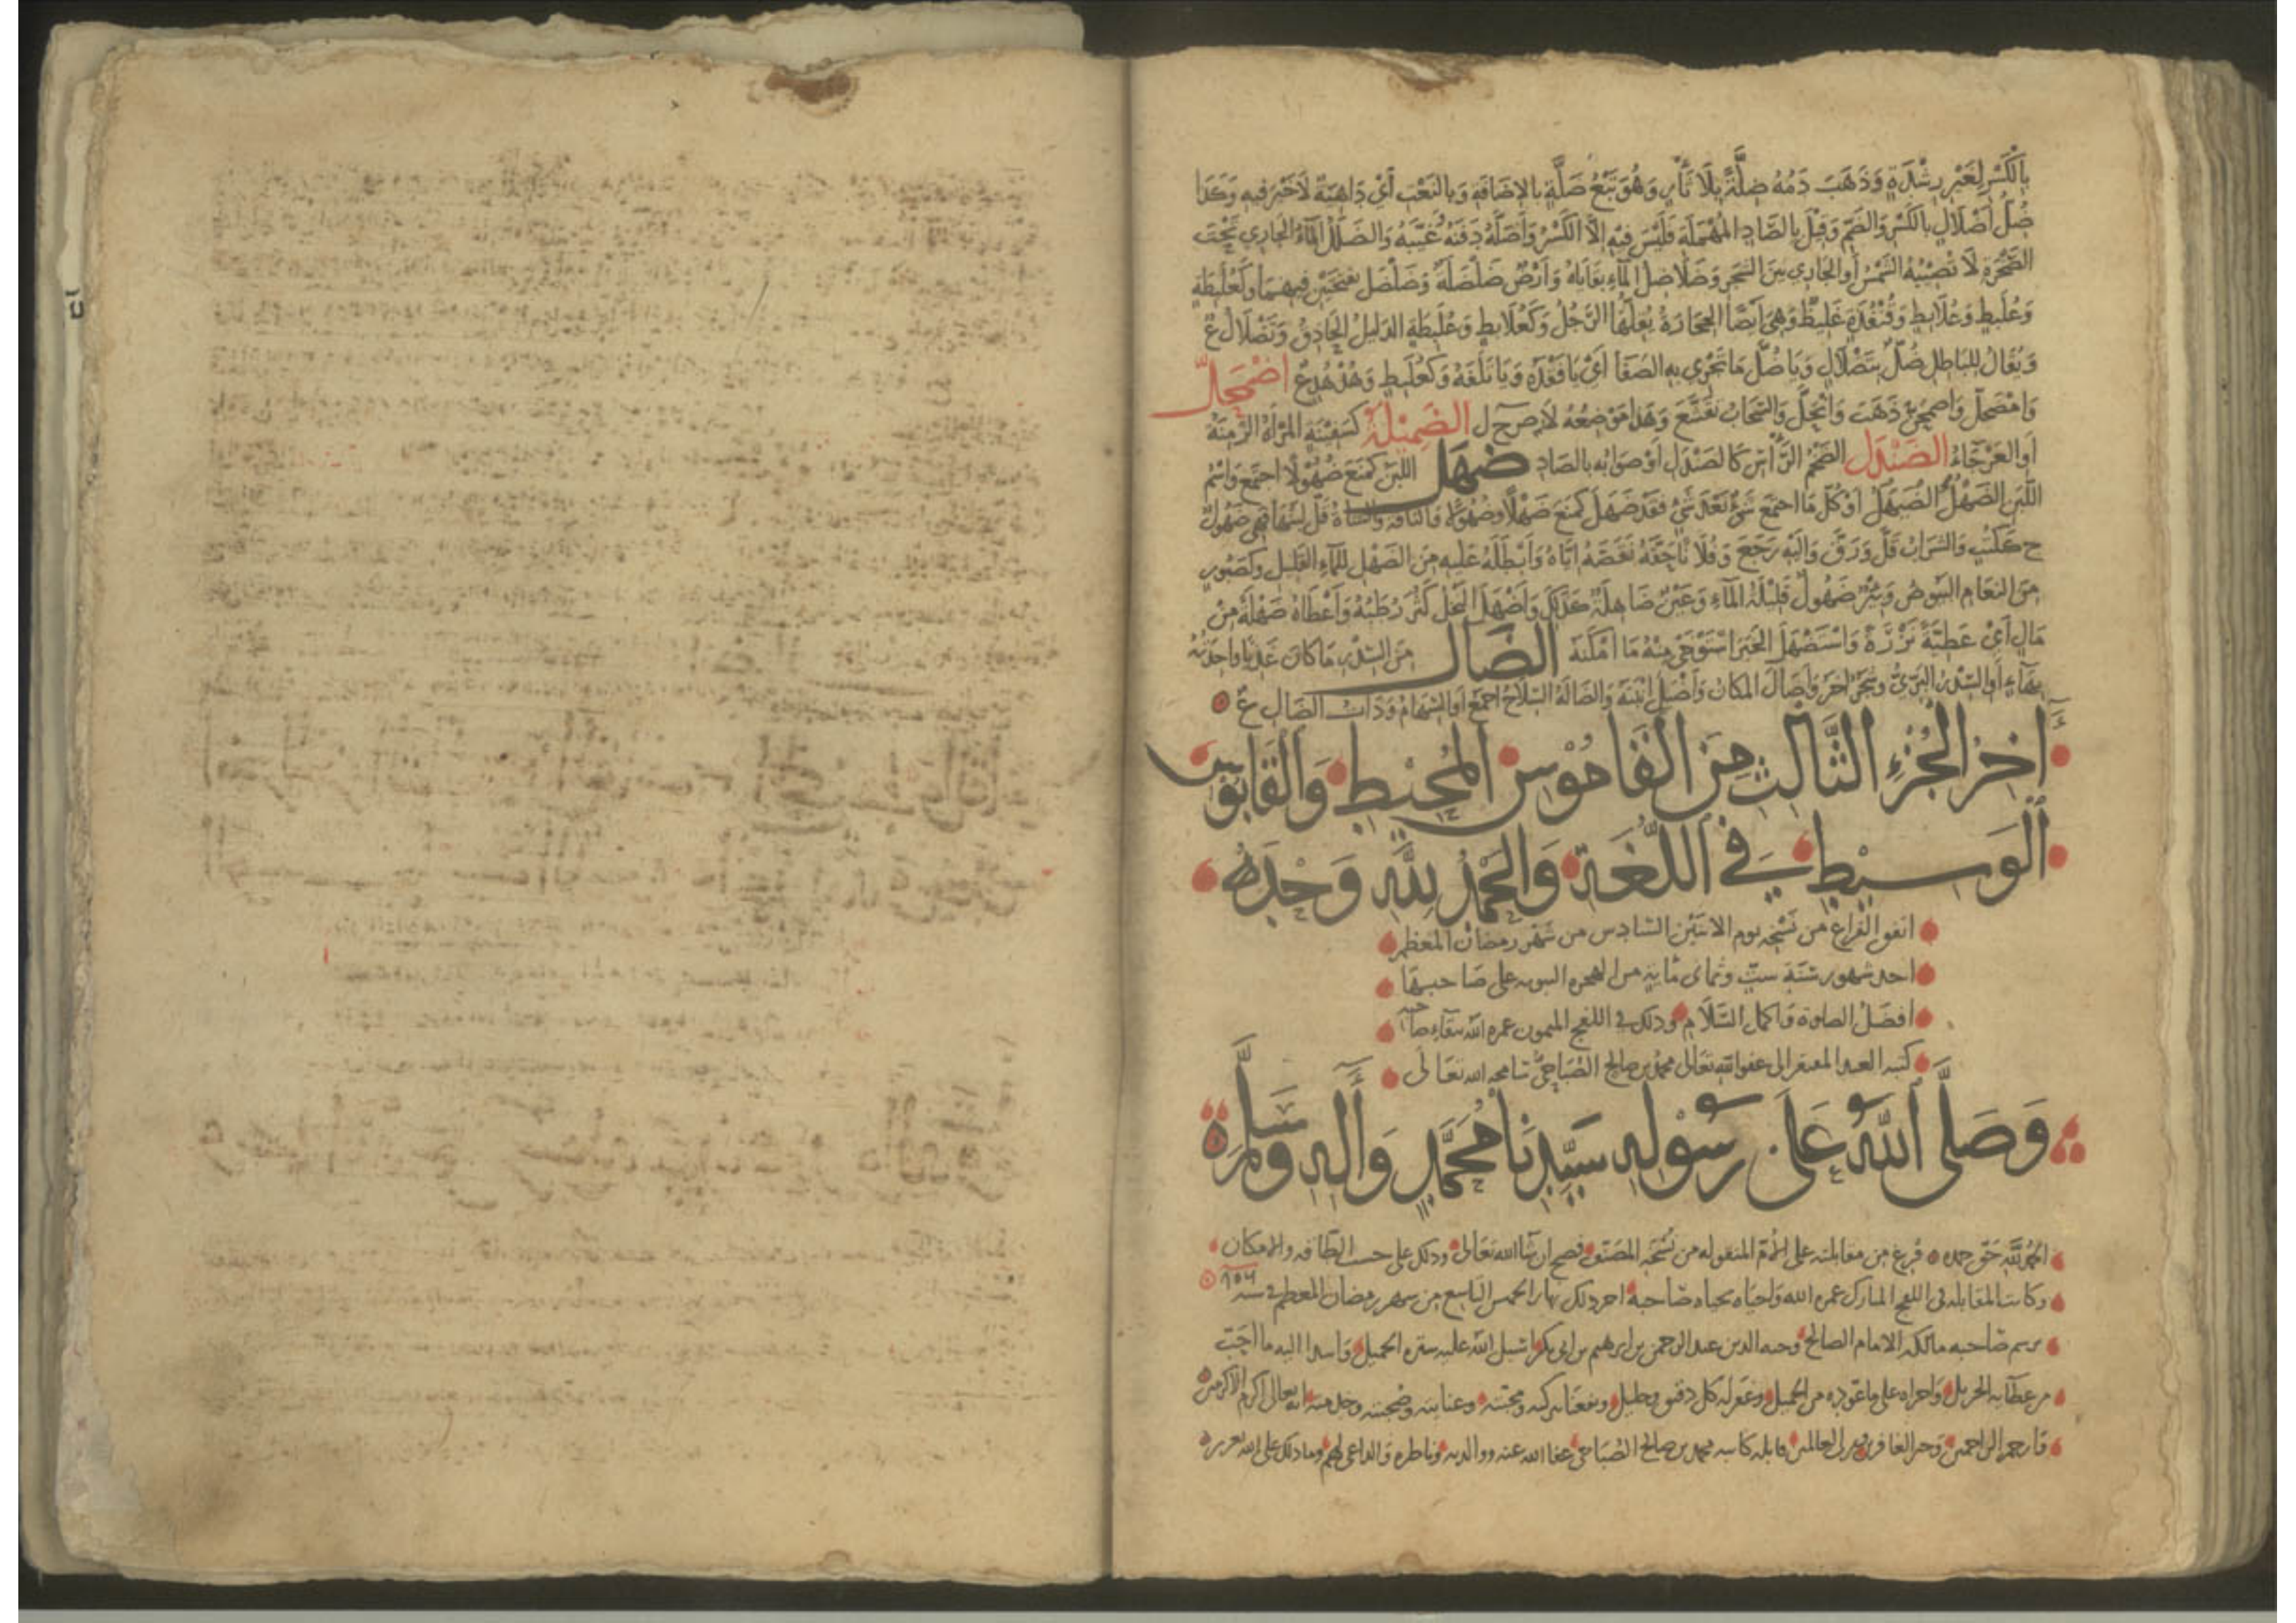 بِالْكَسْرِ لِغَيْرِ رِشْدَةٍ وَذَهَبَ دَمُهُ ضِلَّةً بِلَا ثَأْرٍ وَهُوَ تِبْعُ ضِلَّةٍ بِالإِضَافَةِ وَبِالنَّعْتِ أَيْ دَاهِيَةٌ لَا خَيْرَ فِيهِ وَكَذَا
ضُلُّ أَضْلَالٍ بِالْكَسْرِ وَالضَّمِّ وَقِيلَ بِالصَّادِ المُهْمَلَةِ فَلَيْسَ فِيهِ إِلَّا الكَسْرُ وَأَضَلَّهُ دَفَنَهُ وَغَيَّبَهُ وَالضَّلَلُ المَاءُ الجَارِي تَحْتَ
الصَّخْرَةِ لَا تُصِيبُهُ الشَّمْسُ أَوِ الجَارِي بَيْنَ الشَّجَرِ وَضَلَاضِلُ المَاءِ بَقَايَاهُ وَأَرْضٌ ضَلْضَلَةٌ وَضَلْضَلٌ بِفَتْحَتَيْنِ فِيهِمَا وَكَعُلَبِطَةٍ
وَعُلَبِطٍ وَعُلَابِطٍ وَقُنْفُذَةٍ غَلِيظَةٌ وَهِيَ أَيْضًا الحِجَارَةُ يُقِلُّهَا الرَّجُلُ وَكَعُلَابِطٍ وَعُلَبِطَةٍ الدَّلِيلُ الحَاذِقُ وَتَضْلَالُ ع
وَيُقَالُ لِلْبَاطِلِ ضُلٌّ بِتَضْلَالٍ وَيَا ضُلَّ مَا تَجْرِي بِهِ العَصَا أَيْ يَا فَقْدَهُ وَيَا تَلَفَهُ وَكَعُلَبِطٍ وَهُدْهُدٍ ع اضْمَحَلَّ
وَامْضَحَلَّ وَاضْمَحَنَّ ذَهَبَ وَانْحَلَّ وَالسَّحَابُ تَقَشَّعَ وَهَذَا مَوْضِعُهُ لَا ض ح ل الضَّمِيلَةُ كَسَفِينَةٍ المَرْأَةُ الزَّمِنَةُ
أَوِ العَرْجَاءُ الضَّنْدَلُ الضَّخْمُ الرَّأْسِ كَالصَّنْدَلِ أَوْ صَوَابُهُ بِالصَّادِ ضَهَلَ اللَّبَنُ كَمَنَعَ ضُهُولًا اجْتَمَعَ وَاسْمُ
اللَّبَنِ الضَّهْلُ الضَّهَلُ أَوْ كُلُّ مَا اجْتَمَعَ شَيْءٌ بَعْدَ شَيْءٍ فَقَدْ ضَهَلَ كَمَنَعَ ضَهْلًا وَضُهُولًا وَالنَّاقَةُ وَالشَّاةُ قَلَّ لَبَنُهَا فَهِيَ ضَهُولٌ
ج كَكُتُبٍ وَالشَّرَابُ قَلَّ وَرَقَّ وَإِلَيْهِ رَجَعَ وَفُلَانًا حَقَّهُ نَقَصَهُ إِيَّاهُ وَأَبْطَلَهُ عَلَيْهِ مِنَ الضَّهْلِ لِلْمَاءِ القَلِيلِ وَكَصَبُورٍ
مِنَ النَّعَامِ البَيُوضُ وَبِئْرٌ ضَهُولٌ قَلِيلَةُ المَاءِ وَعَيْنٌ ضَاهِلَةٌ كَذَلِكَ وَأَضْهَلَ النَّخْلُ كَثُرَ رُطَبُهُ وَأَعْطَاهُ ضَهْلَةً مِنْ
مَالٍ أَيْ عَطِيَّةً نَزْرَةً وَاسْتَضْهَلَ الخَبَرَ اسْتَوْحَى مِنْهُ مَا أَمْكَنَهُ الضَّالُ مِنَ السِّدْرِ مَا كَانَ عَذْيًا وَاحِدَتُهُ
بِهَاءٍ أَوِ السِّدْرُ البَرِّيُّ وَشَجَرٌ آخَرُ وَأَضَالَ المَكَانُ وَأَضْيَلَ أَنْبَتَهُ وَالضَّالَةُ السِّلَاحُ أَجْمَعُ أَوِ السِّهَامُ وَذَاتُ الضَّالِ ع
آخِرُ الجُزْءِ الثَّالِثِ مِنَ القَامُوسِ المُحِيطِ وَالقَابُوسِ
الوَسِيطِ فِي اللُّغَةِ وَالحَمْدُ لِلَّهِ وَحْدَهُ
اتفق الفراغ من نسخه يوم الاثنين السادس من شهر رمضان المعظم
احد شهور سنة ست وثماني مائة من الهجرة النبوية على صاحبها
افضل الصلوة واكمل السلام وذلك في اللفج الميمون عمره الله ببقاء صاحبه
كتبه العبد المفتقر الى عفو الله تعالى محمد بن صالح الصباحي سامحه الله تعالى
وَصَلَّى اللهُ عَلَى رَسُولِهِ سَيِّدِنَا مُحَمَّدٍ وَآلِهِ وَسَلَّمَ
الحمد لله حق حمده فرغ من مقابلته على الأم المنقولة من نسخة المصنف فصح ان شا الله تعالى وذلك على حسب الطاقه والامكان
وكانت المقابله في اللفج المبارك عمره الله واحياه بحياه صاحبه اخر ذلك نهار الخميس التاسع من شهر رمضان المعظم سنة
برسم صاحبه مالكه الامام الصالح وجيه الدين عبد الرحمن بن ابرهيم بن ابي بكر اسبل الله عليه ستره الجميل واسدا اليه ما احب
من عطائه الجزيل واجراه على ما عوده من الجميل وغفر له كل دقيق وجليل ونفعنا ببركته ومحبته وعنايته وصحبته انه تعالى اكرم الاكرمين
وارحم الراحمين وخير الغافرين رب العالمين قابله كاتبه محمد بن صالح الصباحي عفا الله عنه ووالديه وناظره والداعي لهم وما ذلك على الله بعزيز